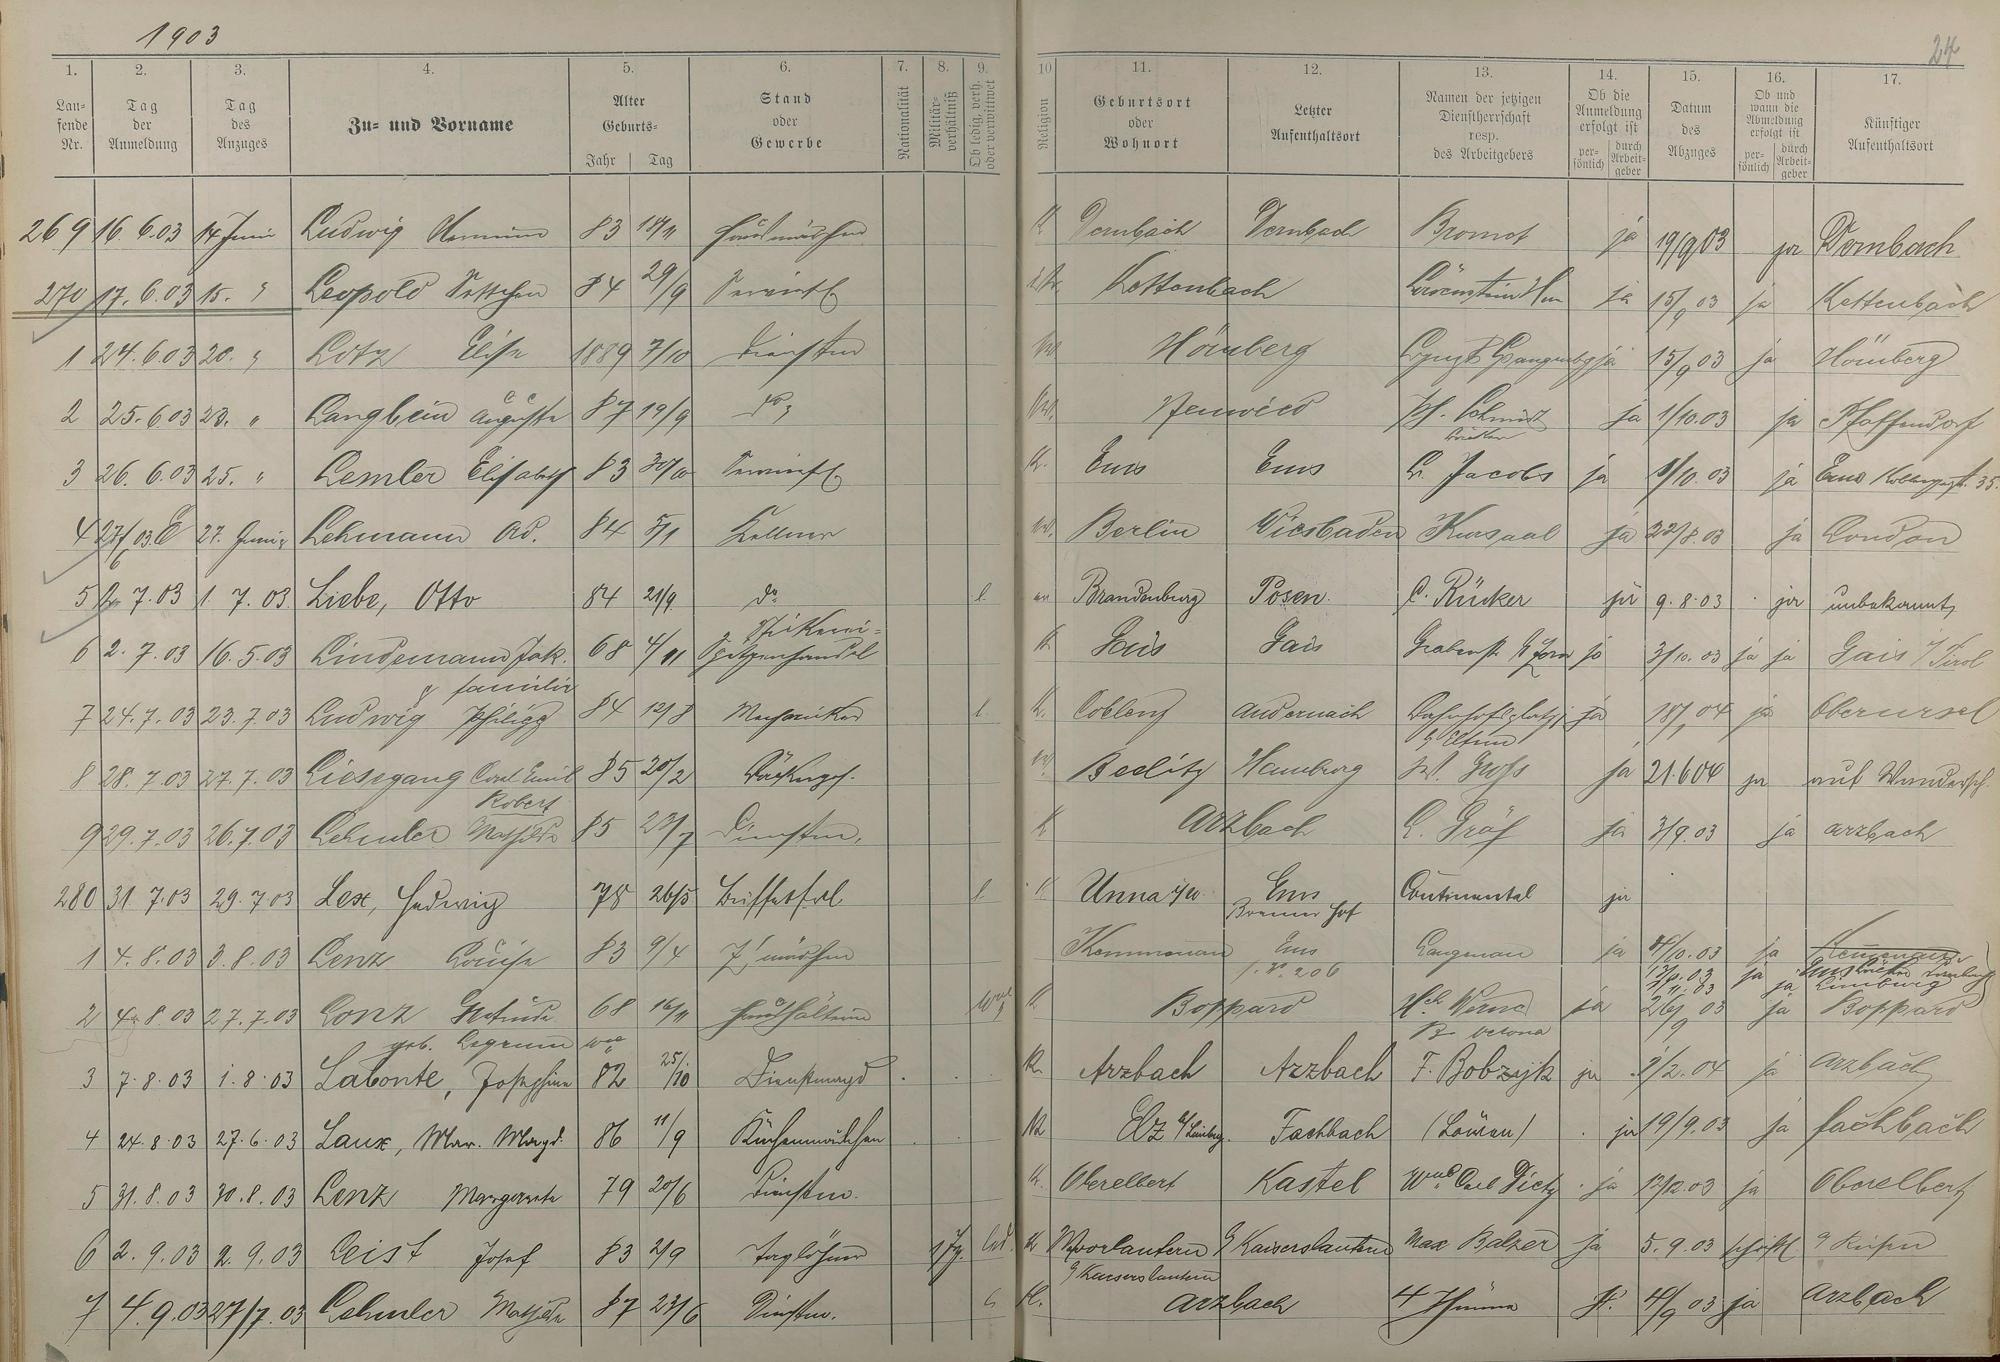 1903
24
1. 2. 3. 4. 5. 6. 7. 8. 9. 10 11. 12. 13. 14. 15. 16. 17.
Lau-fende Nr. Tag der Anmeldung Tag des Anzuges Zu- und Vorname Alter Geburts- Jahr Tag Stand oder Gewerbe Nationalität Militär-verhältniß Ob ledig, verh. oder verwittwet Religion Geburtsort oder Wohnort Letzter Aufenthaltsort Namen der jetzigen Dienstherrschaft resp. des Arbeitgebers Ob die Anmeldung erfolgt ist per-sönlich durch Arbeit-geber Datum des Abzuges Ob und wann die Abmeldung erfolgt ist per-sönlich durch Arbeit-geber Künftiger Aufenthaltsort
269 16. 6. 03 14 Juni Ludwig 83 18/11 Hausmädchen K Dernbach Dernbach ja 19/9 03 ja Dernbach
270 17. 6. 03 15. " Leopold 84 29/9 Kettenbach ja 15/9 03 ja Kettenbach
1 24. 6. 03 20. " Lotz Elise 1889 7/10 Dienstm Hömberg ja 15/9 03 ja Hömberg
2 25. 6. 03 23. " Langbein Auguste 87 19/9 do Neuwied Schmidt ja 1/10. 03 ja Pfaffendorf
3 26. 6. 03 25. " Lemler Elisabeth 83 30/10 K. Ems Ems Jacobs ja 1/10. 03 ja Ems 35.
4 27/6 03 27. Juni Lehmann Ad. 84 5/1 Kellner Berlin Wiesbaden Kursaal ja 22/8. 03 ja London
5 2. 7. 03 1 7. 03 Liebe, Otto 84 21/9 do l. Brandenburg Posen C. Rücker ja 9. 8. 03 ja unbekannt
6 2. 7. 03 16. 5. 03 Lindemann Jak. 68 4/11 Spitzenhandel K Gais Gais ja 3/10. 03 ja ja Gais i/Tirol
Familie
7 24. 7. 03 23. 7. 03 Ludwig Philipp 84 12/8 Mechaniker l. K. Coblenz Andernach Bahnhofsplatz ja 18/1 04 ja Oberursel
8 28. 7. 03 27. 7. 03 Liesegang Carl Emil 85 20/2 Bäckergeh. Beelitz Hamburg W. Groß ja 21. 6 04 ja auf Wandersch.
Robert
9 29. 7. 03 26. 7. 03 Lehmler Mathilde 85 23/7 Dienstm. K Arzbach Gräf ja 3/9. 03 ja Arzbach
280 31. 7. 03 29. 7 03 Lex, Hedwig 78 26/5 Buffetfrl l. K Unna i/W Ems Continental ja
Bremer Hof
1 4. 8. 03 3. 8. 03 Lenz Louise 83 9/4 Z. mädchen Kemmenau Ems ja /10. 03 ja Kemmenau
206 ja Ems
ja Limburg
2 4. 8. 03 27. 7. 03 Lonz 68 16/11 Haushälterin K. Boppard ja 26/9 03 ja Boppard
geb.
3 7. 8. 03 1. 8. 03 Labonte, Josephine 82 25/10 Dienstmagd K. Arzbach Arzbach F. Bobzyk ja /2. 04 ja Arzbach
4 24. 8. 03 27. 6. 03 Laux, Mar. Magd. 86 11/9 Küchenmädchen K Elz b/Limbrg. Fachbach (Löwen) ja 19/9. 03 ja Fachbach
5 31. 8. 03 30. 8. 03 Lenz Margarete 79 20/6 Dienstm. K. Oberelbert Kastel Wwe Carl Dietz ja 12/2. 03 ja Oberelbert
6 2. 9. 03 2. 9. 03 Leist Josef 83 2/9 Taglöhner led. K Morlautern b/ Kaiserslautern Max Balzer ja 5. 9. 03
b/ Kaiserslautern
7 4. 9. 03 27/7. 03 Lehmler Mathilde 87 23/6 Dienstm. K. Arzbach 4 Thürme 4/9 03 ja Arzbach